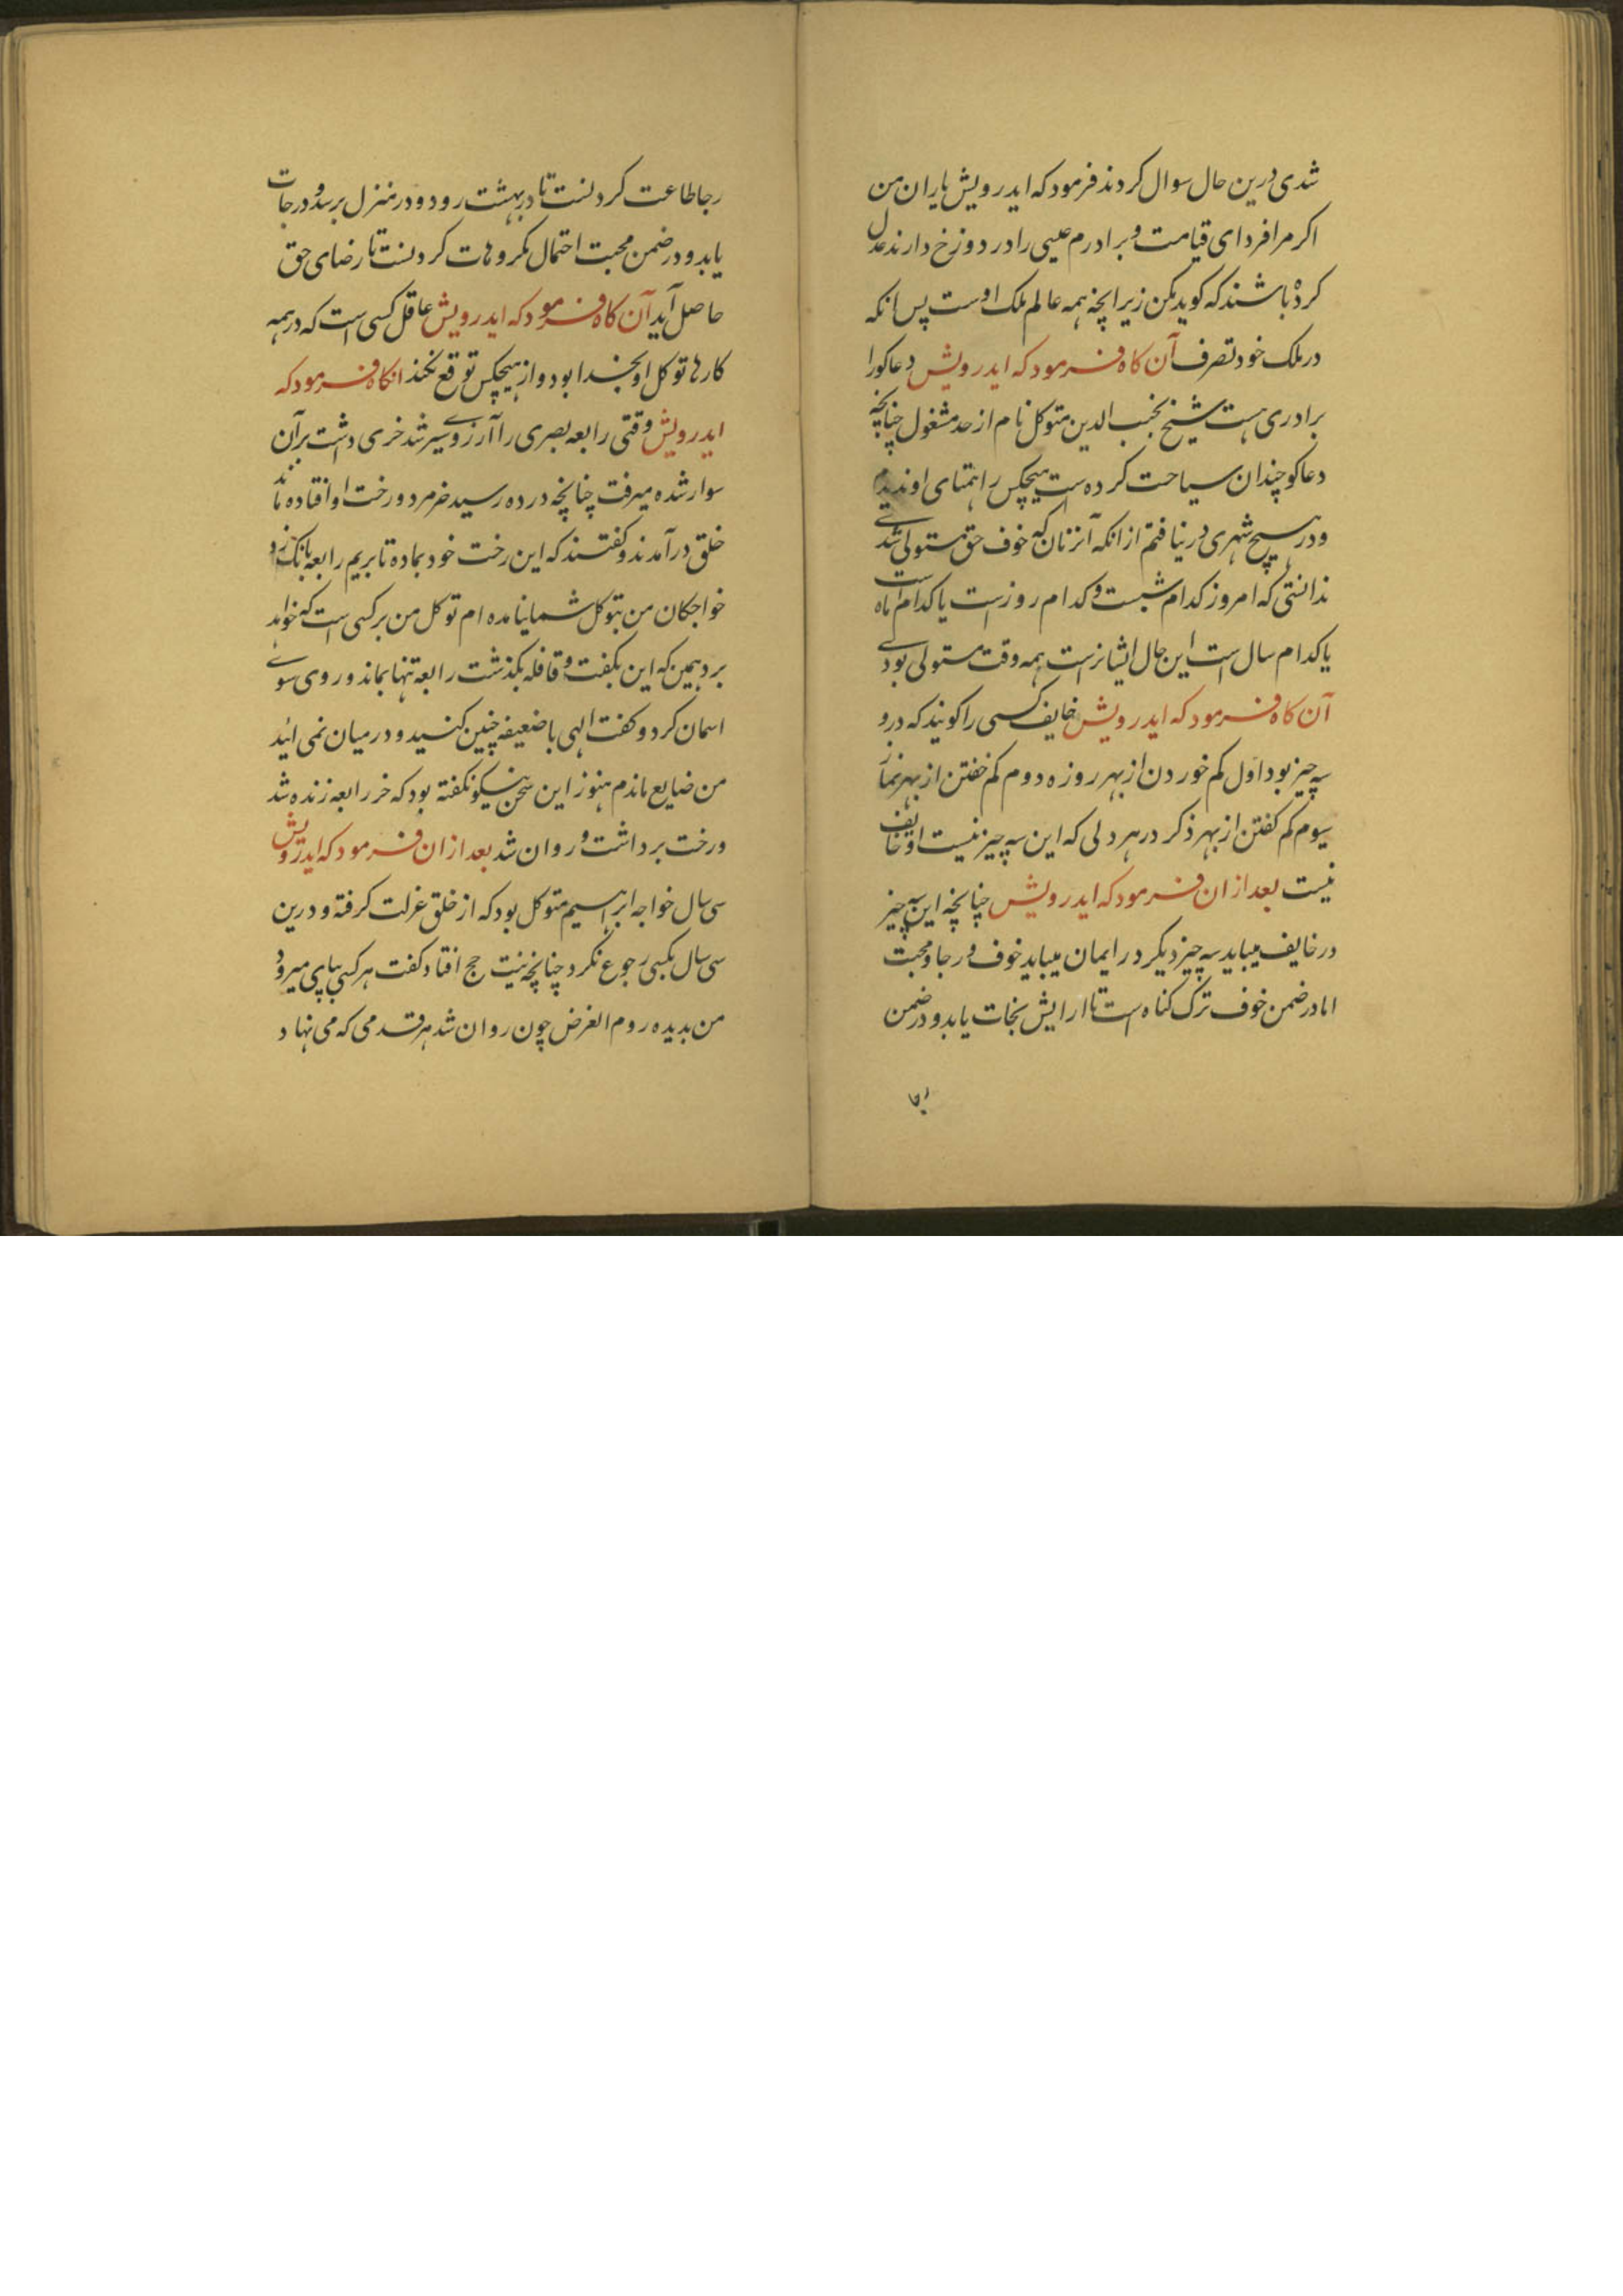 شدی درین حال سوال کردند فرمود که ایدرویش یاران من
اکر مرا فردای قیامت و برادرم عیسی را در دوزخ دارند عدل
کرده باشند که کوید مکن زیرا چه همه عالم ملک اوست پس انکه
در ملک خود تصرف آن کاه فرمود که ایدرویش دعاکو را
برادری هست شیخ نجیب الدین متوکل نام از حد مشغول چنانچه
دعاکو چندان سیاحت کرده است هیچکس را همتای او ندیدم
و در هیچ شهری در نیافتم از انکه آنزمان که خوف حق مستولی شدے
ندانستی که امروز کدام شبست و کدام روزست یا کدام ماه است
یا کدام سال است این حال ایشانرست همه وقت مستولی بودے
آن کاه فرمود که ایدرویش خایف کسی را کویند که درو
سه چیز بود اول کم خوردن از بهر روزه دوم کم خفتن از بهر نماز
سیوم کم کفتن از بهر ذکر در هر دلی که این سه چیز نیست او خایف
نیست بعد از ان فرمود که ایدرویش چنانچه این سه چیز
در خایف میباید سه چیز دیکر در ایمان میباید خوف و رجا و محبت
اما در ضمن خوف ترک کناه است تا ارایش نجات یابد و در ضمن
رجا طاعت کردنست تا در بهشت رود و در منزل برسد و درجات
یابد و در ضمن محبت احتمال مکروهات کردنست تا رضای حق
حاصل آید آن کاه فرمود که ایدرویش عاقل کسی است که در همه
کارها توکل او بخدا بود و از هیچکس توقع نکند انکاه فرمود که
ایدرویش وقتی رابعه بصری را آرزوے سیر شد خری داشت بر آن
سوار شده میرفت چنانچه در ده رسید خر مرد و رخت او افتاده ماند
خلق در آمدند و کفتند که این رخت خود بما ده تا بریم رابعه بانک زد
خواجکان من بتوکل شما نیامده ام توکل من بر کسی است که خواهد
برد همین که این بکفت و قافله بکذشت رابعه تنها بماند و روی سوے
اسمان کرد و کفت الهی با ضعیفه چنین کنند و در میان نمی ائید
من ضایع ماندم هنوز این سخن نیکو نکفته بود که خر رابعه زنده شد
و رخت برداشت و روان شد بعد از ان فرمود که ایدرویش
سی سال خواجه ابراهیم متوکل بود که از خلق عزلت کرفته و درین
سی سال بکسی رجوع نکرد چنانچه نیت حج افتاد کفت هر کسی بپای میرود
من بدیده روم الغرض چون روان شد هر قدمی که می نهاد